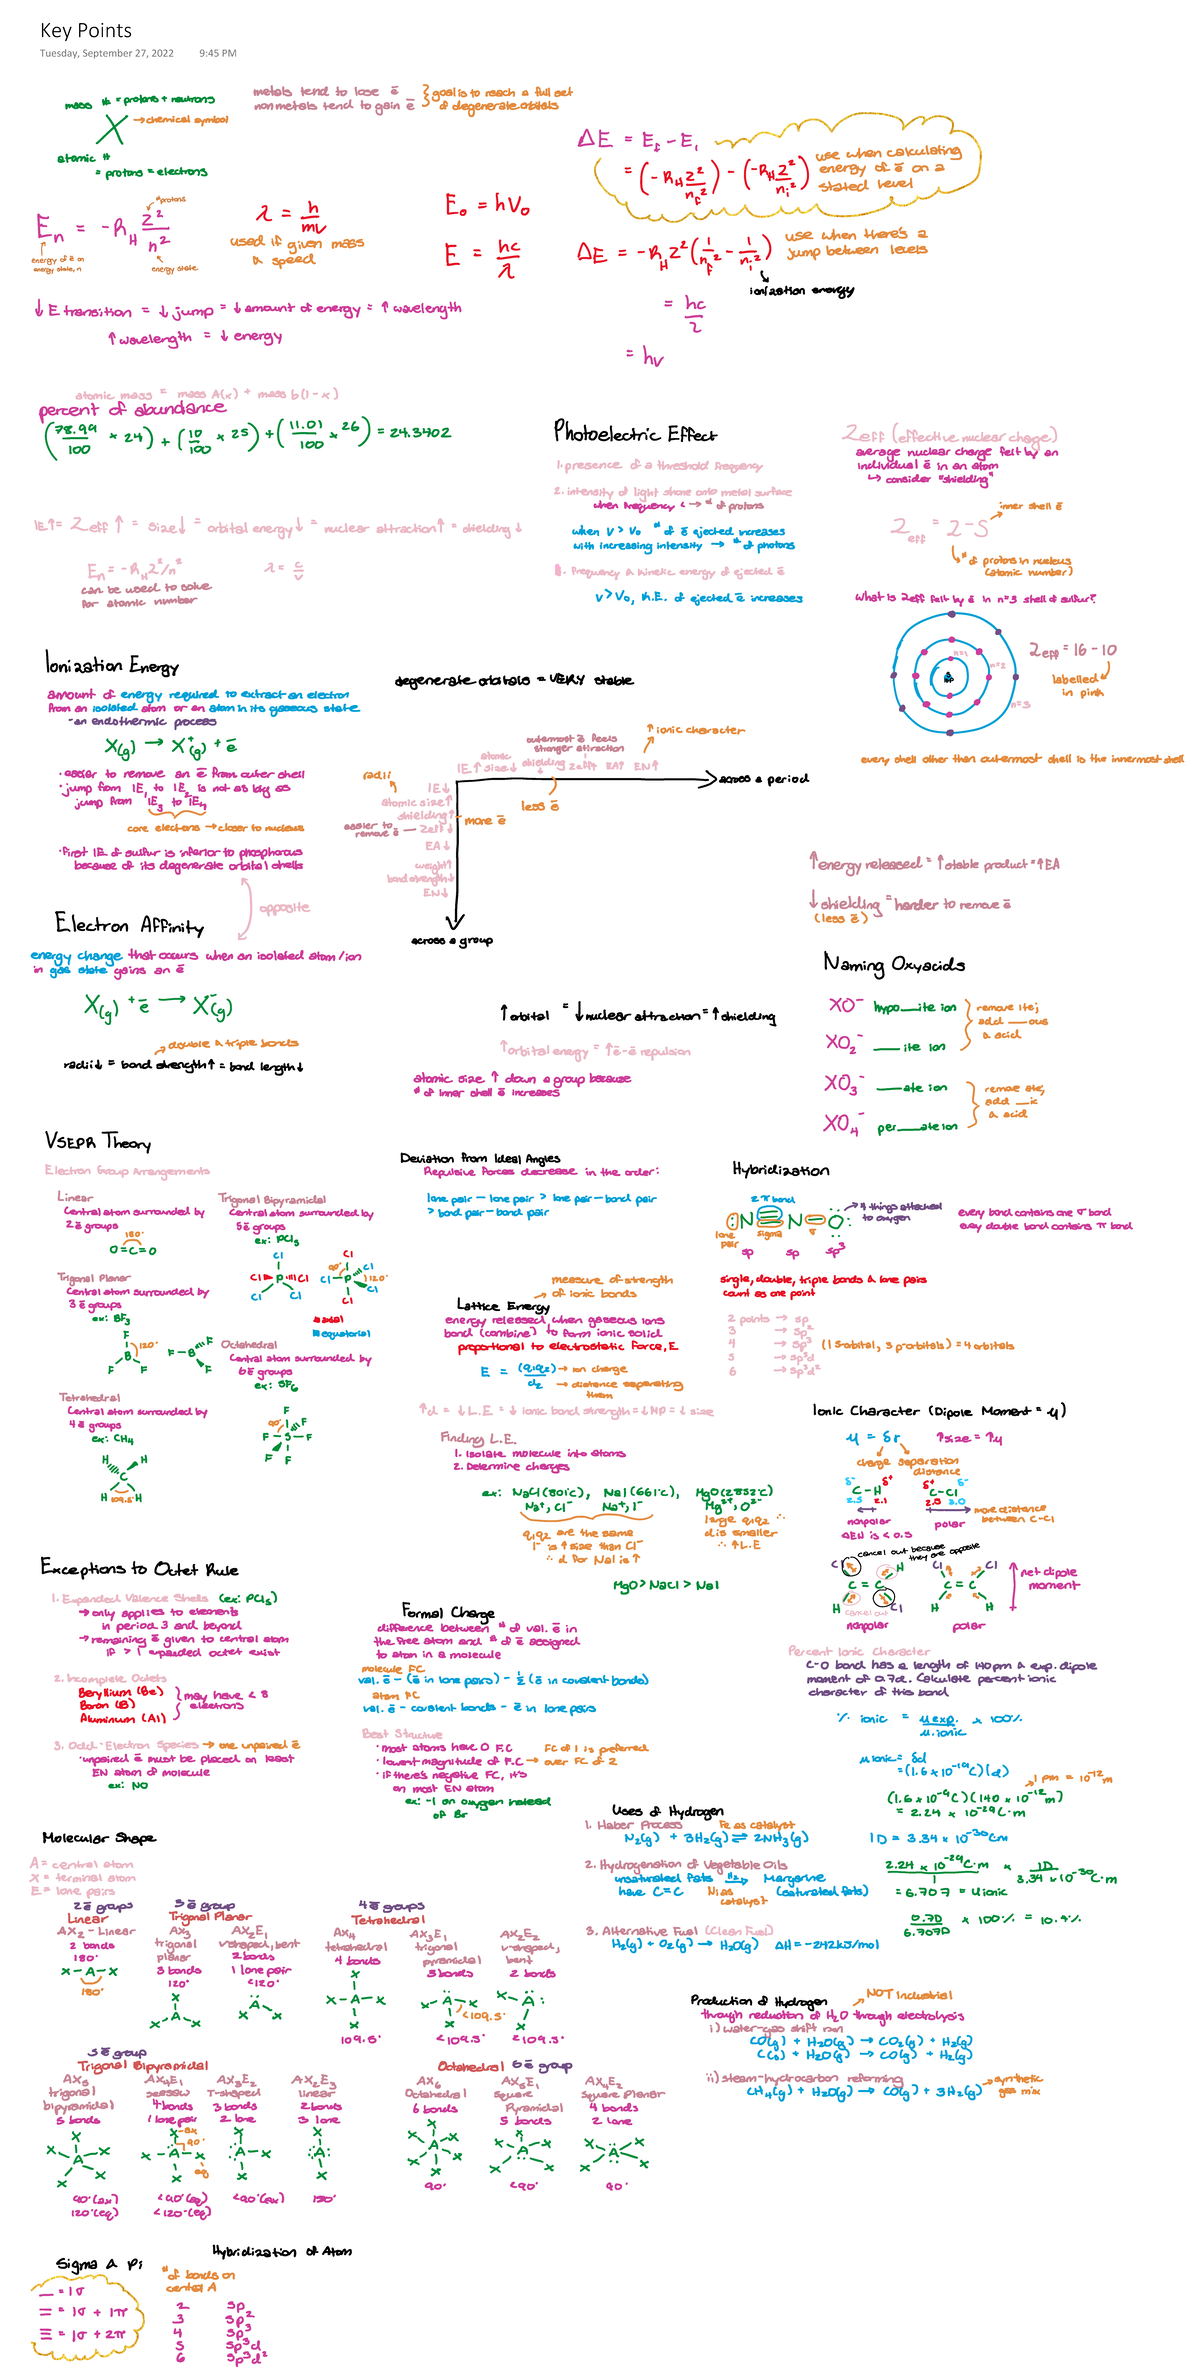 Key Points
Tuesday, September 27, 2022 9:45 PM
mass # = protons + neutrons
X → chemical symbol
atomic #
= protons = electrons
metals tend to lose ē
nonmetals tend to gain ē
goal is to reach a full set
of degenerate orbitals
ΔE = E_f - E_i
= (-R_H Z²/n_f²) - (-R_H Z²/n_i²)
use when calculating
energy of ē on a
stated level
E_n = -R_H Z²/n²
# protons
energy of ē on
energy state, n
energy state
λ = h/mv
used if given mass
& speed
E₀ = hV₀
E = hc/λ
ΔE = -R_H Z² (1/n_f² - 1/n_i²)
use when there's a
jump between levels
ionization energy
= hc/λ
= hv
↓ E transition = ↓ jump = ↓ amount of energy = ↑ wavelength
↑ wavelength = ↓ energy
atomic mass = mass A(x) + mass b(1-x)
percent of abundance
(78.99/100 × 24) + (10/100 × 25) + (11.01/100 × 26) = 24.3402
IE↑ = Zeff ↑ = size↓ = orbital energy↓ = nuclear attraction↑ = shielding ↓
E_n = -R_H Z²/n²
λ = c/v
can be used to solve
for atomic number
Photoelectric Effect
1. presence of a threshold frequency
2. intensity of light shone onto metal surface
when frequency < → # of protons
when v > v₀ # of ē ejected increases
with increasing intensity → # of photons
3. Frequency & kinetic energy of ejected ē
v > v₀, K.E. of ejected ē increases
Zeff (effective nuclear charge)
average nuclear charge felt by an
individual ē in an atom
↳ consider "shielding"
Zeff = Z - S
inner shell ē
# of protons in nucleus
(atomic number)
What is Zeff felt by ē in n=3 shell of sulfur?
n=1
n=2
n=3
Zeff = 16 - 10
labelled
in pink
every shell other than outermost shell is the innermost shell
Ionization Energy
amount of energy required to extract an electron
from an isolated atom or an atom in its gaseous state
-an endothermic process
X(g) → X⁺(g) + ē
·easier to remove an ē from outer shell
·jump from IE₁ to IE₂ is not as big as
jump from IE₃ to IE₄
core electrons → closer to nucleus
·First IE of sulfur is inferior to phosphorous
because of its degenerate orbital shells
opposite
degenerate orbitals = VERY stable
↑ ionic character
outermost ē feels
stronger attraction
IE↑ atomic size↓ shielding↓ Zeff↑ EA↑ EN↑
across a period
less ē
radii
IE↓
atomic size↑
shielding↑
more ē
easier to
remove ē
Zeff↓
EA↓
weight↑
bond strength↓
EN↓
across a group
↑energy released = ↑stable product = ↑EA
↓shielding = harder to remove ē
(less ē)
Electron Affinity
energy change that occurs when an isolated atom/ion
in gas state gains an ē
X(g) + ē → X⁻(g)
double & triple bonds
radii↓ = bond strength↑ = bond length↓
↑orbital = ↓nuclear attraction = ↑shielding
↑orbital energy = ↑ē-ē repulsion
atomic size ↑ down a group because
# of inner shell ē increases
Naming Oxyacids
XO⁻ hypo___ite ion
XO₂⁻ ___ite ion
remove ite;
add ___ous
& acid
XO₃⁻ ___ate ion
XO₄⁻ per___ate ion
remove ate;
add ___ic
& acid
VSEPR Theory
Electron Group Arrangements
Linear
Central atom surrounded by
2ē groups
180°
O=C=O
Trigonal Planar
Central atom surrounded by
3ē groups
ex: BF₃
120°
Tetrahedral
Central atom surrounded by
4ē groups
ex: CH₄
109.5°
Trigonal Bipyramidal
Central atom surrounded by
5ē groups
ex: PCl₅
90°
120°
axial
equatorial
Octahedral
Central atom surrounded by
6ē groups
ex: SF₆
90°
Deviation from Ideal Angles
Repulsive Forces decrease in the order:
lone pair — lone pair > lone pair — bond pair
> bond pair — bond pair
measure of strength
of ionic bonds
Lattice Energy
energy released when gaseous ions
bond (combine) to form ionic solid
proportional to electrostatic force, E
E = (q₁q₂)/d₂
→ ion charge
→ distance separating
them
↑d = ↓L.E = ↓ ionic bond strength = ↓MP = ↓ size
Finding L.E.
1. Isolate molecule into atoms
2. Determine charges
ex: NaCl (801°C), NaI (661°C), MgO (2852°C)
Na⁺, Cl⁻ Na⁺, I⁻ Mg²⁺, O²⁻
q₁q₂ are the same
I⁻ is ↑size than Cl⁻
∴ d for NaI is ↑
large q₁q₂ ∴
d is smaller
∴ ↑L.E
MgO > NaCl > NaI
Hybridization
2 π bond
:N≡N-O:
4 things attached
to oxygen
lone
pair
sigma
σ
sp sp sp³
every bond contains one σ bond
every double bond contains π bond
single, double, triple bonds & lone pairs
count as one point
2 points → sp
3 → sp²
4 → sp³ (1 s orbital, 3 p orbitals) = 4 orbitals
5 → sp³d
6 → sp³d²
Ionic Character (Dipole Moment = μ)
μ = δr ↑size = ↑μ
charge separation
distance
δ⁻ δ⁺
C-H
2.5 2.1
nonpolar
ΔEN is < 0.5
δ⁺ δ⁻
C-Cl
2.5 3.0
polar
more distance
between C-Cl
cancel out because
they are opposite
cancel out
nonpolar
polar
net dipole
moment
Percent Ionic Character
C-O bond has a length of 140pm & exp. dipole
moment of 0.7d. Calculate percent ionic
character of this bond
% ionic = μ exp./μ ionic × 100%
μ ionic = δd
= (1.6 × 10⁻¹⁹C)(d)
1 pm = 10⁻¹²m
(1.6 × 10⁻¹⁹C)(140 × 10⁻¹²m)
= 2.24 × 10⁻²⁹C·m
1D = 3.34 × 10⁻³⁰Cm
2.24 × 10⁻²⁹C·m/1 × 1D/3.34 × 10⁻³⁰C·m
= 6.707 = μ ionic
0.7D/6.707D × 100% = 10.4%
Exceptions to Octet Rule
1. Expanded Valence Shells (ex: PCl₅)
→ only applies to elements
in period 3 and beyond
→ remaining ē given to central atom
if > 1 expanded octet exist
2. Incomplete Octets
Beryllium (Be)
Boron (B)
Aluminum (Al)
may have < 8
electrons
3. Odd-Electron Species → one unpaired ē
·unpaired ē must be placed on least
EN atom of molecule
ex: NO
Formal Charge
difference between # of val. ē in
the free atom and # of ē assigned
to atom in a molecule
molecule FC
val. ē - (ē in lone pairs) - ½ (ē in covalent bonds)
atom FC
val. ē - covalent bonds - ē in lone pairs
Best Structure
·most atoms have 0 F.C
·lowest magnitude of F.C → FC of 1 is preferred
over FC of 2
·if there's negative FC, it's
on most EN atom
ex: -1 on oxygen instead
of Br
Uses of Hydrogen
1. Haber Process Fe as catalyst
N₂(g) + 3H₂(g) ⇌ 2NH₃(g)
2. Hydrogenation of Vegetable Oils
unsaturated fats H₂→ Margarine
have C=C Ni as
catalyst (saturated fats)
3. Alternative Fuel (Clean Fuel)
H₂(g) + O₂(g) → H₂O(g) ΔH = -242kJ/mol
Production of Hydrogen → NOT Industrial
through reduction of H₂O through electrolysis
i) water-gas shift rxn
CO(g) + H₂O(g) → CO₂(g) + H₂(g)
C(s) + H₂O(g) → CO(g) + H₂(g)
ii) steam-hydrocarbon reforming
CH₄(g) + H₂O(g) → CO(g) + 3H₂(g) → synthetic
gas mix
Molecular Shape
A = central atom
X = terminal atom
E = lone pairs
2ē groups
Linear
AX₂ - Linear
2 bonds
180°
X-A-X
180°
3ē groups
Trigonal Planar
AX₃
trigonal
planar
3 bonds
120°
AX₂E₁
v-shaped, bent
2 bonds
1 lone pair
<120°
4ē groups
Tetrahedral
AX₄
tetrahedral
4 bonds
109.5°
AX₃E₁
trigonal
pyramidal
3 bonds
<109.5°
<109.5°
AX₂E₂
v-shaped,
bent
2 bonds
<109.5°
5ē group
Trigonal Bipyramidal
AX₅
trigonal
bipyramidal
5 bonds
90°(ax)
120°(eq)
AX₄E₁
seesaw
4 bonds
1 lone pair
ax
90°
eq
<90°(eq)
<120°(eq)
AX₃E₂
T-shaped
3 bonds
2 lone
<90°(ax)
AX₂E₃
linear
2 bonds
3 lone
180°
Octahedral 6ē group
AX₆
Octahedral
6 bonds
90°
AX₅E₁
Square
Pyramidal
5 bonds
<90°
AX₄E₂
Square Planar
4 bonds
2 lone
90°
Sigma & Pi
— = 1σ
= = 1σ + 1π
≡ = 1σ + 2π
Hybridization of Atom
# of bonds on
central A
2 sp
3 sp²
4 sp³
5 sp³d
6 sp³d²